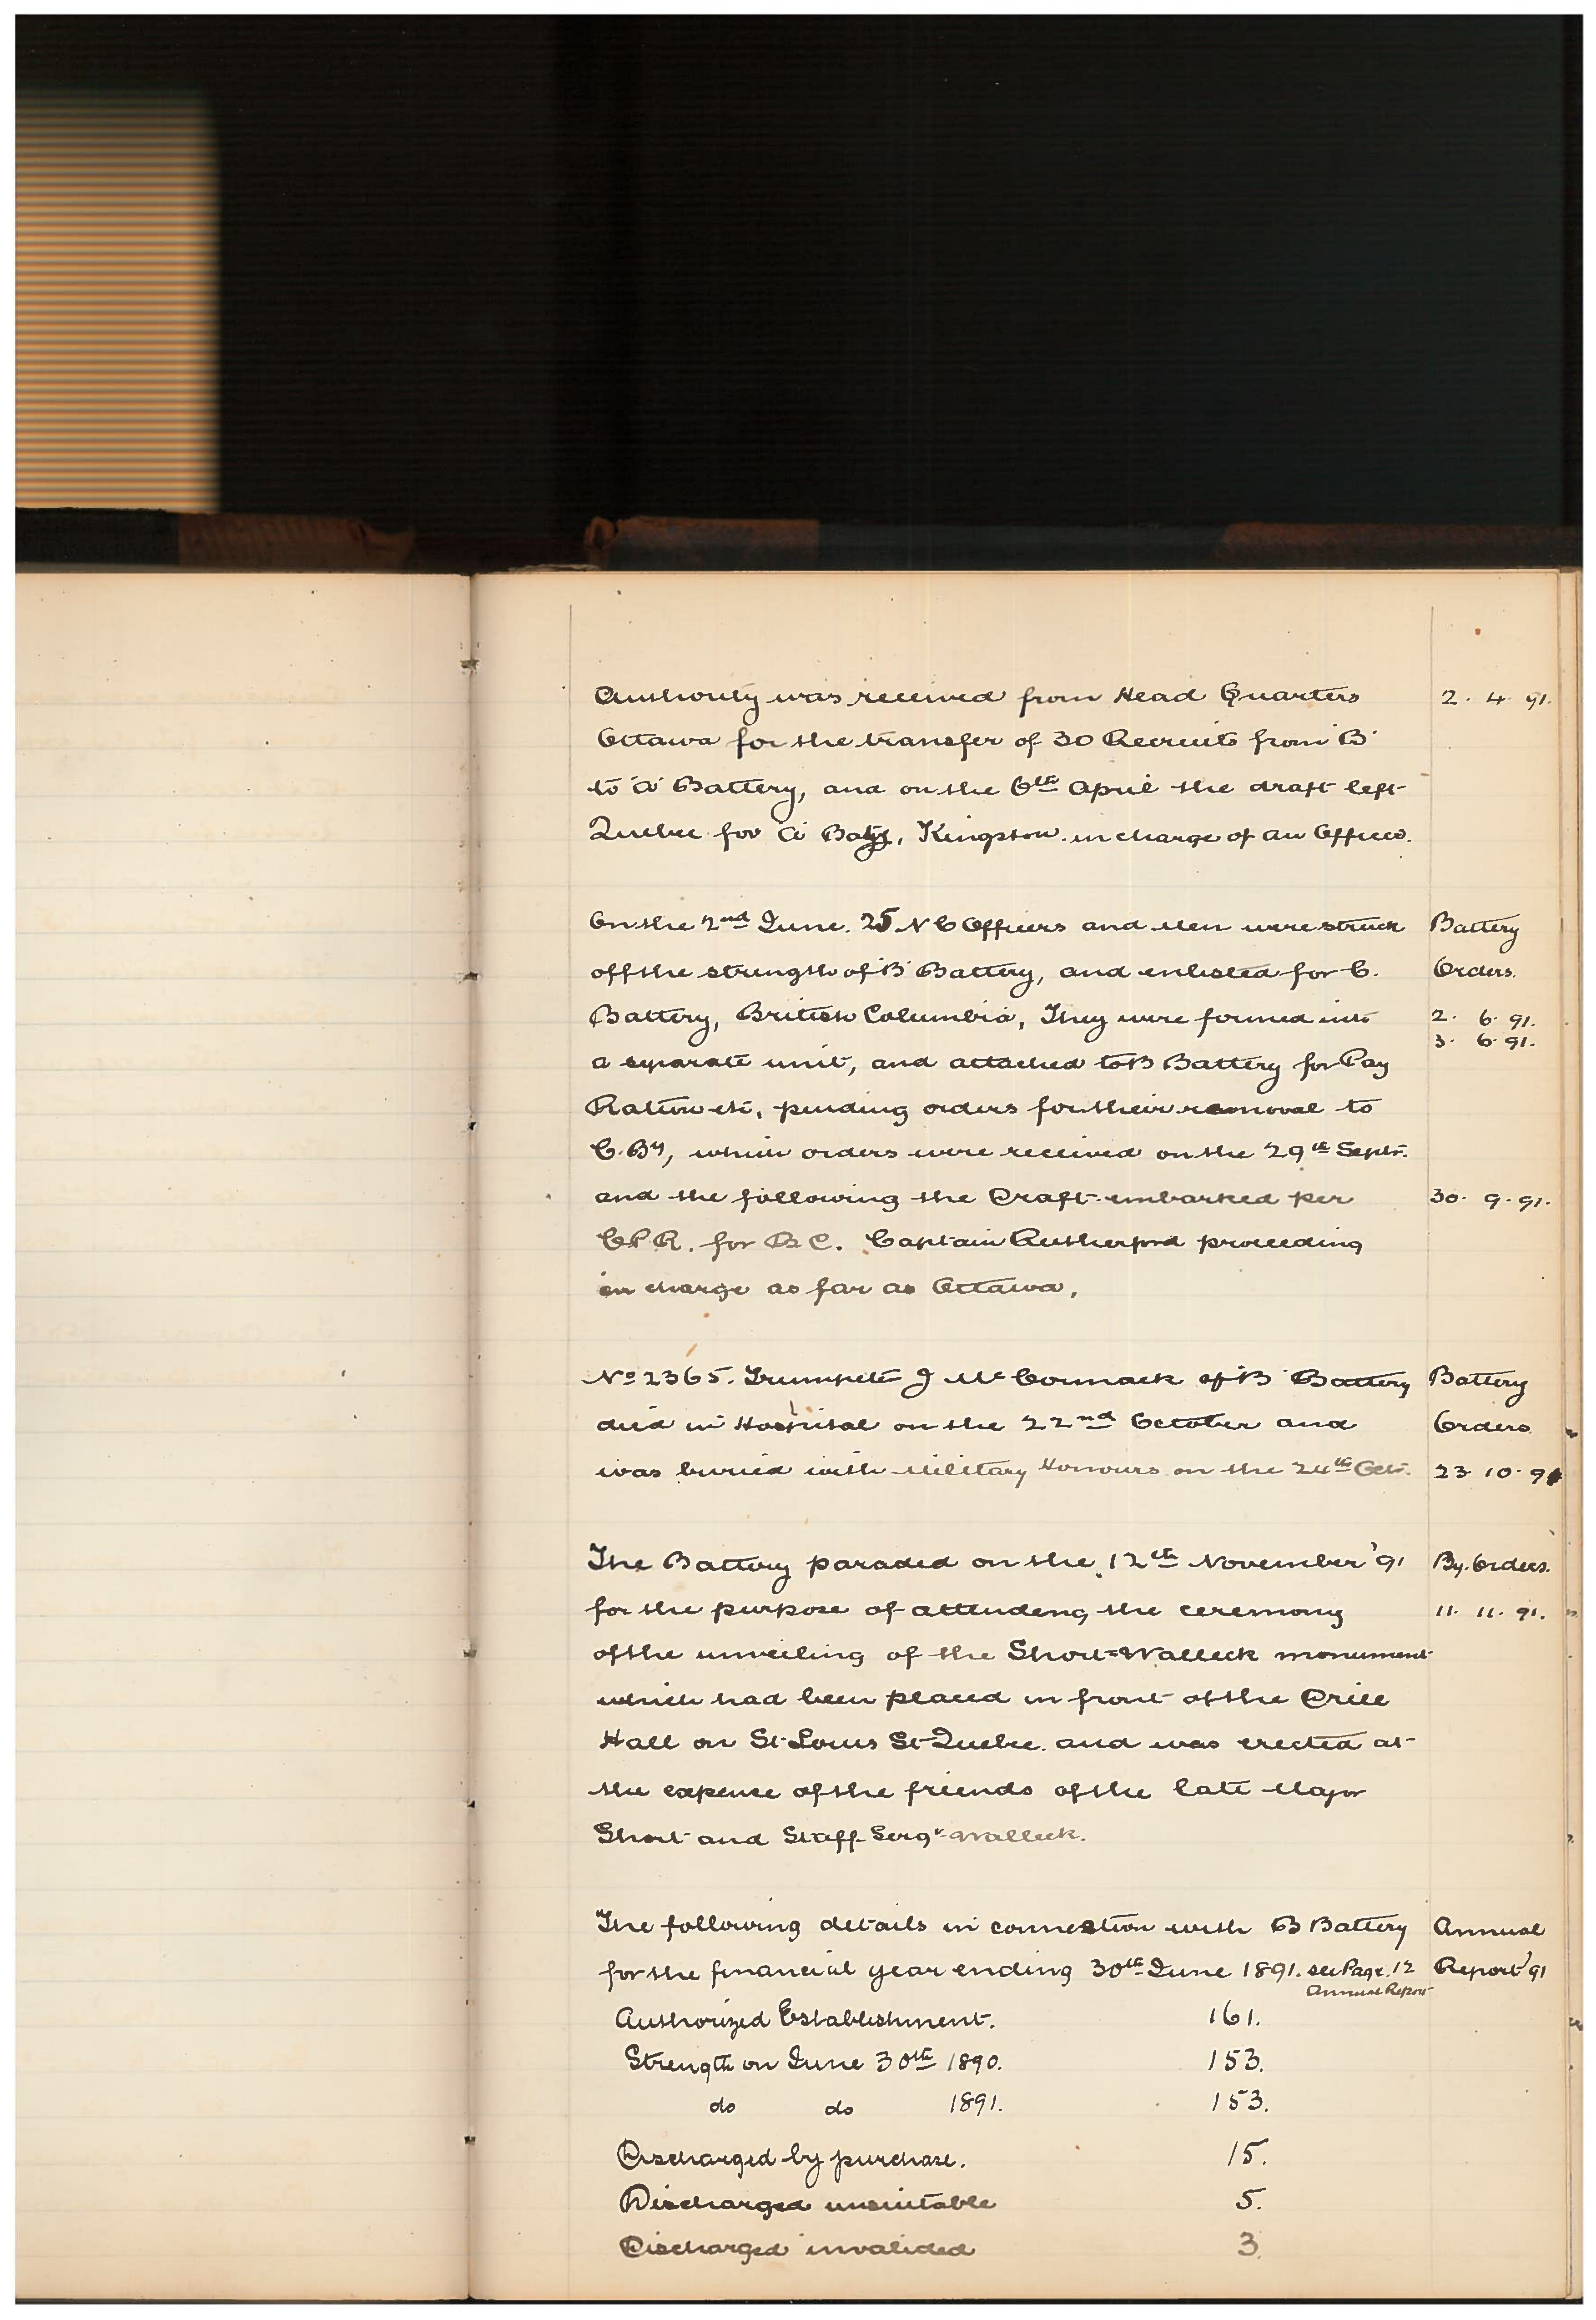 Authority was received from Head Quarters 2. 4. 91.
Ottawa for the transfer of 30 Recruits from 'B'
to 'A' Battery, and on the 6th April the draft left
Quebec for 'A' Baty, Kingston in charge of an Officer.
On the 2nd June. 25 N C Officers and Men were struck Battery
off the strength of 'B' Battery, and enlisted for C. Orders.
Battery, British Columbia, They were formed into 2. 6. 91.
3. 6. 91.
a separate unit, and attached to B Battery for Pay
Ration etc, pending orders for their removal to
C. By, which orders were received on the 29th Septr.
and the following the Draft embarked per 30. 9. 91.
C.P.R. for B.C. Captain Rutherford proceeding
in charge as far as Ottawa,
No 2365. Trumpeter J McCormack of 'B' Battery Battery
died in Hospital on the 22nd October and Orders
was buried with Military Honours on the 24th Oct. 23. 10. 91
The Battery paraded on the 12th November '91 By. Orders.
for the purpose of attending the ceremony 11. 11. 91.
of the unveiling of the Short=Walleck monument
which had been placed in front of the Drill
Hall on St Louis St Quebec. and was erected at
the expense of the friends of the late Major
Short and Staff Sergt Walleck.
"The following details in connection with B Battery Annual
for the financial year ending 30th June 1891. see Page. 12 Report '91
Annual Report
Authorized Establishment. 161.
Strength on June 30th 1890. 153.
do do 1891. 153.
Discharged by purchase. 15.
Discharged unsuitable 5.
Discharged invalided 3.